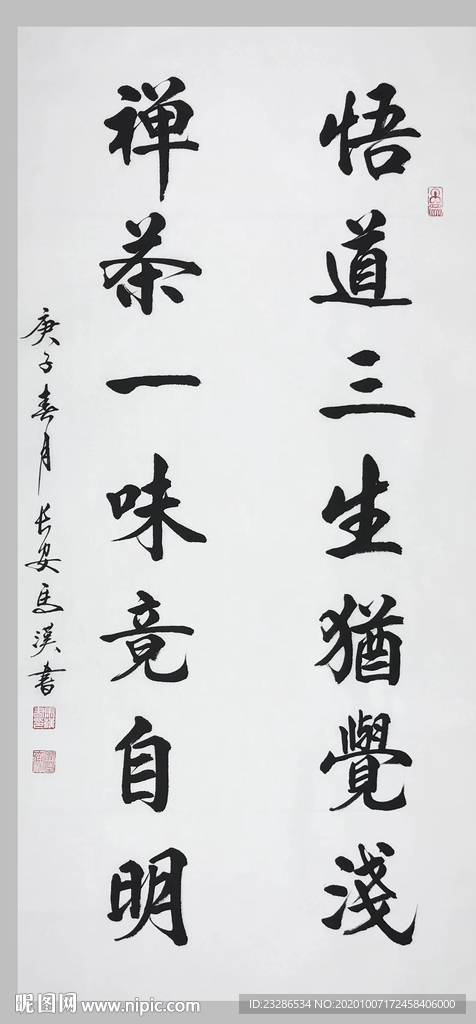 悟道三生猶覺淺
禅茶一味竟自明
庚子春月长安馬漢書
昵图网 www.nipic.com
ID:23286534 NO:20201007172458406000